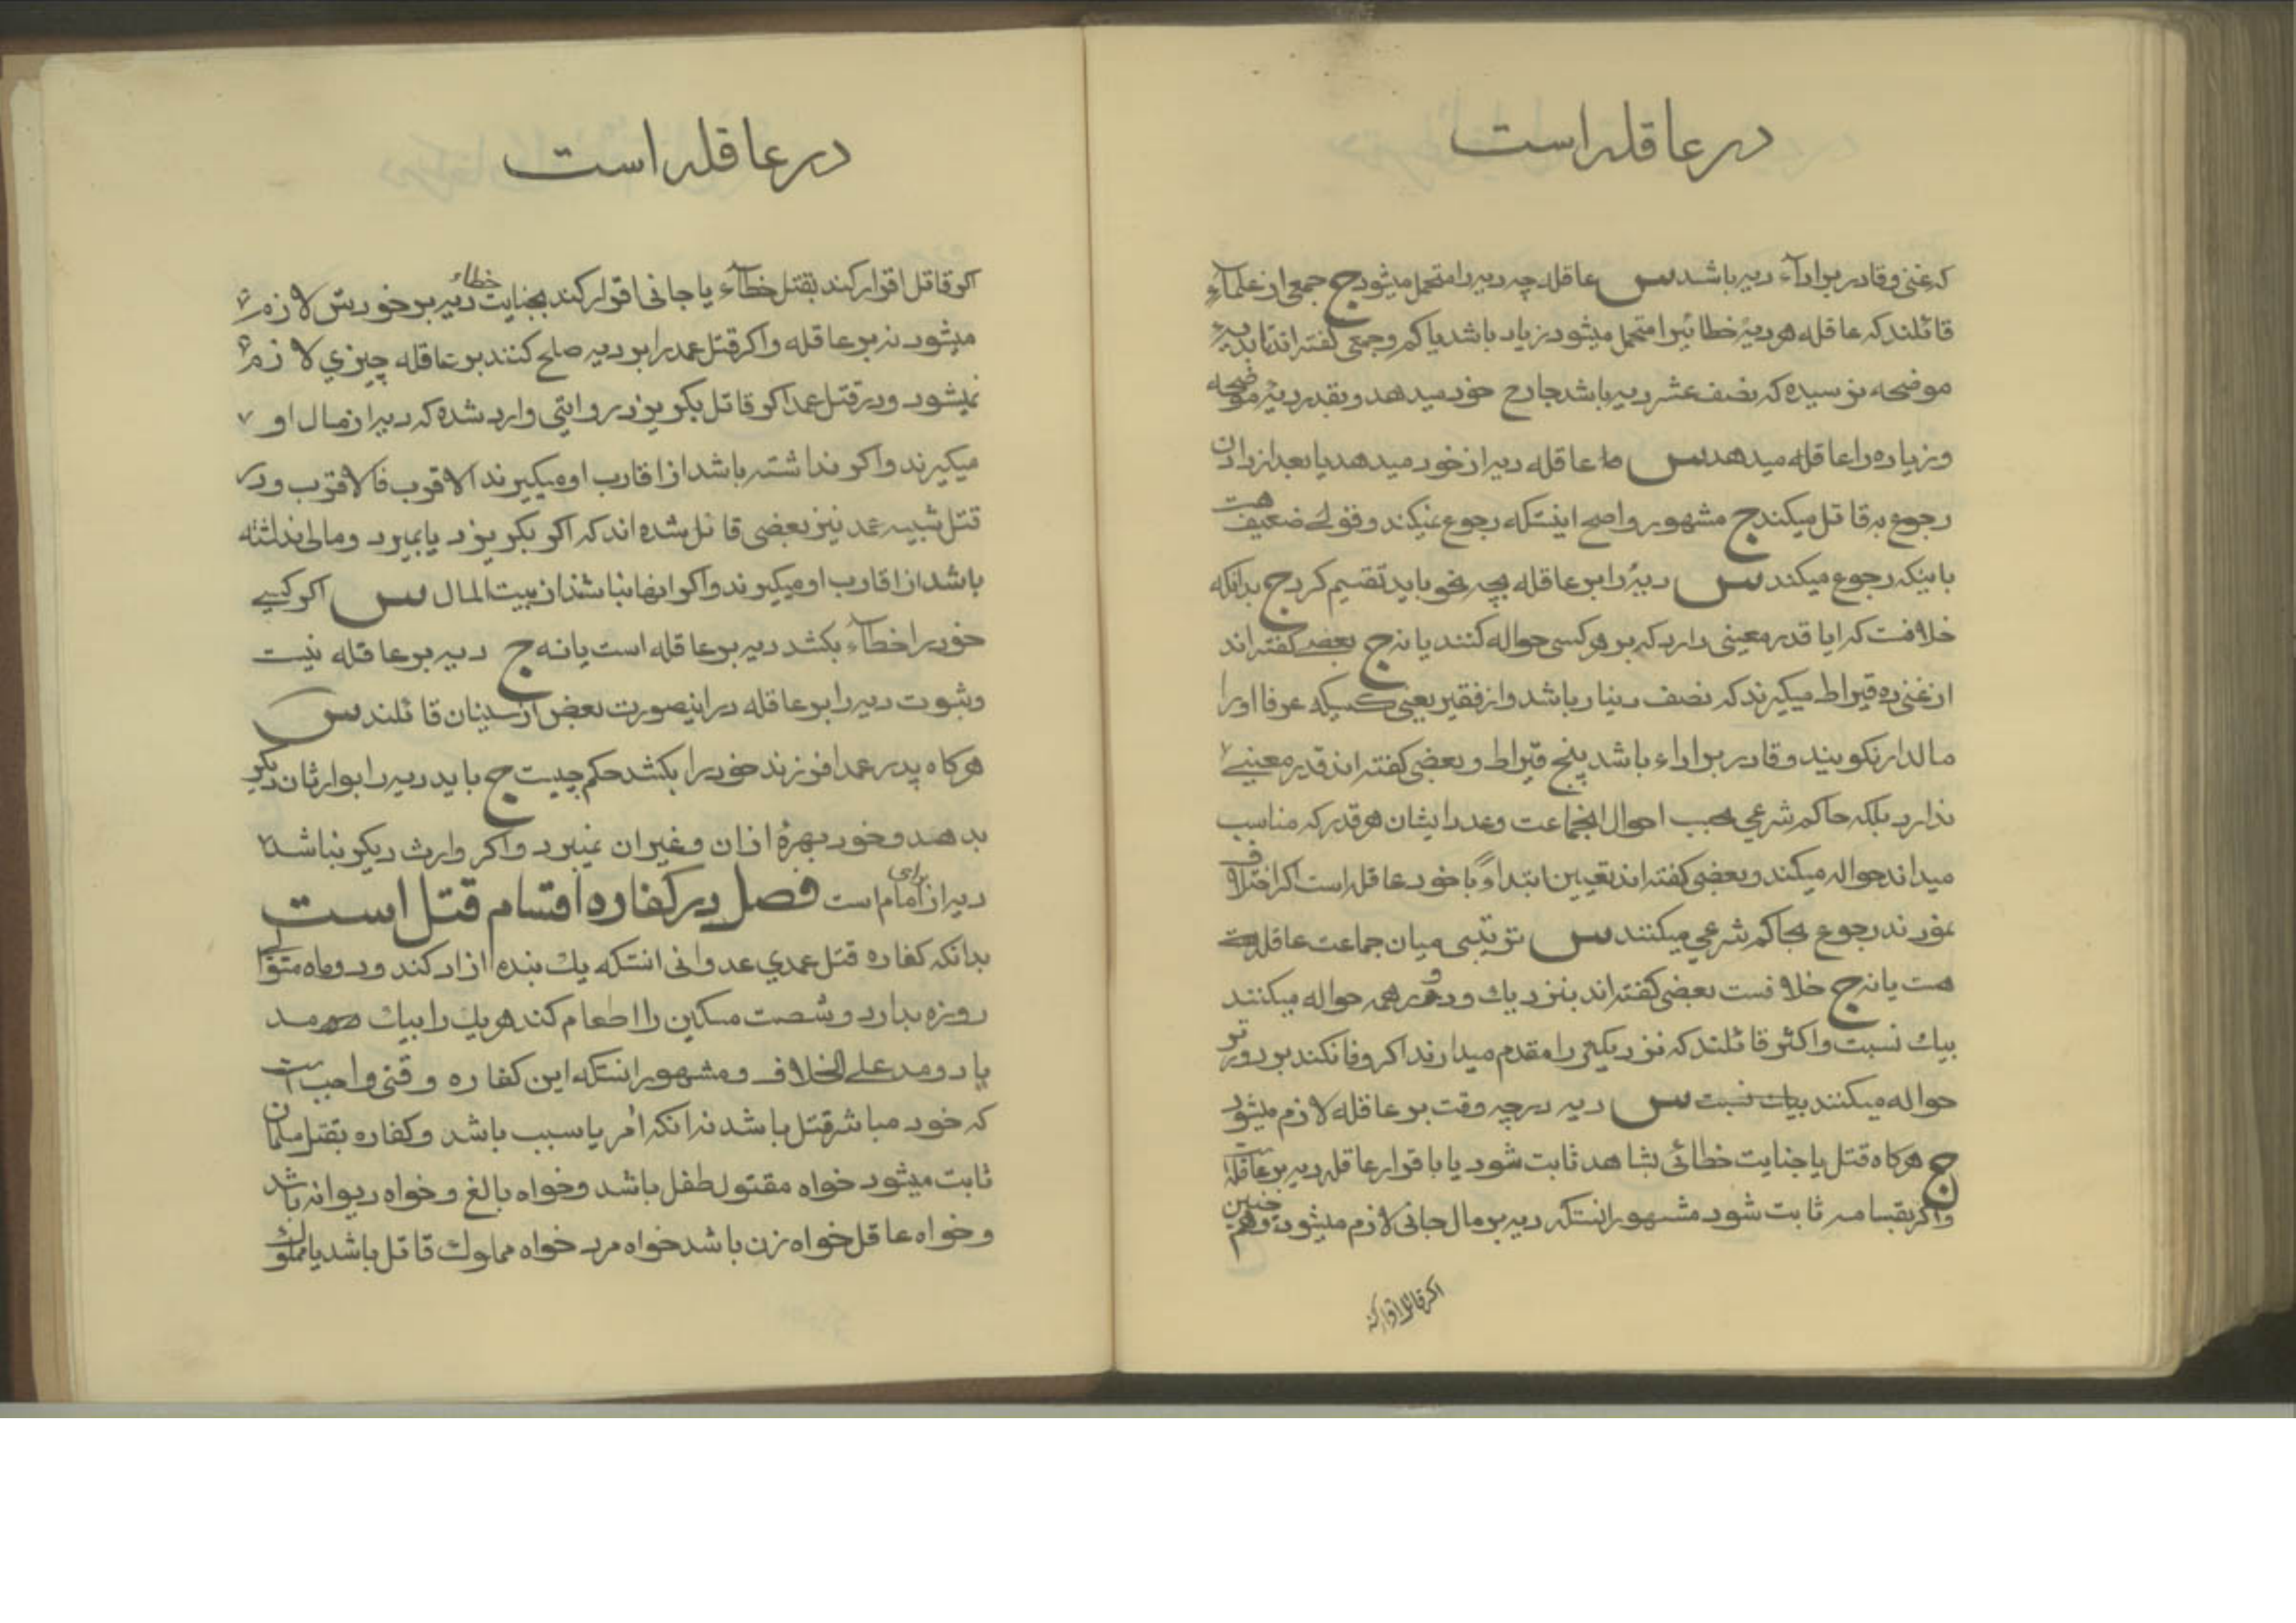 در عاقله است
که غنی وقادر بر اداء دیه باشد س عاقله چه دیه را متحمل میشود ج جمعی از علماء
قائلند که عاقله هر دیهٔ خطائیرا متحمل میشود زیاد باشد یا کم وجمعی گفته اند تا بدیهٔ
موضحه نرسیده که نصف عشر دیه باشد جارح خود میدهد وبقدر دیهٔ موضحه
وزیاده را عاقله میدهد س عاقله دیه از خود میدهد یا بعد از دادن
رجوع به قاتل میکند ج مشهور واصح اینستکه رجوع نمیکند وقولے ضعیف هست
باینکه رجوع میکند س دیهٔ را بر عاقله بچه نحو باید تقسیم کرد ج بدانکه
خلافست که ایا قدر معینی دارد که بر هر کسی حواله کنند یا نه ج بعضے گفته اند
از غنی ده قیراط میگیرند که نصف دینار باشد واز فقیر یعنی کسیکه عرفا او را
مالدار نگویند وقادر بر اداء باشد پنج قیراط وبعضی گفته اند قدر معینے
ندارد بلکه حاکم شرعی بحسب احوال انجماعت وعدد ایشان هر قدر که مناسب
میداند حواله میکند وبعضی گفته اند تعیین ابتداءً با خود عاقله است اگر اختلاف
نمودند رجوع بحاکم شرعی میکنند س ترتیبی میان جماعت عاقله
هست یا نه ج خلافست بعضی گفته اند بنزدیك ودور همه حواله میکنند
بیك نسبت واکثر قائلند که نزدیکتر را مقدم میدارند اگر وفا نکند بر دورتر
حواله میکنند بیك نسبت س دیه در چه وقت بر عاقله لازم میشود
ج هر گاه قتل یا جنایت خطائی بشاهد ثابت شود یا باقرار عاقله دیه بر عاقله است
واگر بقسامه ثابت شود مشهور انستکه دیه بر مال جانی لازم میشود وهم چنین
اگر قاتل اقرار کند
در عاقله است
اگر قاتل اقرار کند بقتل خطآء یا جانی اقرار کند بجنایت خطاء دیه بر خودش لازم
میشود نه بر عاقله واگر قتل عمد را بر دیه صلح کنند بر عاقله چیزی لازم
نمیشود ودر قتل عمد اگر قاتل بگریزد روایتی وارد شده که دیه از مال او
میگیرند واگر نداشته باشد از اقارب او میگیرند الاقرب فالاقرب ودر
قتل شبیه عمد نیز بعضی قائل شده اند که اگر بگریزد یا بمیرد ومالی نداشته
باشد از اقارب او میگیرند واگر اینها نباشند از بیت المال س اگر کسے
خود را خطآء بکشد دیه بر عاقله است یا نه ج دیه بر عاقله نیست
وثبوت دیه را بر عاقله در اینصورت بعض از سنیان قائلند س
هر گاه پدر عمدا فرزند خود را بکشد حکم چیست ج باید دیه را بوارثان دیگر
بدهد وخود بهرهٔ ازان وغیر ان نمیبرد واگر وارث دیگر نباشد
دیه از برای امام است فصل در کفاره اقسام قتل است
بدانکه کفاره قتل عمدی عدوانی انستکه یك بنده ازاد کند ودو ماه متوالی
روزه بدارد وشصت مسکین را اطعام کند هر یك را بیك مد
یا دو مد علی الخلاف ومشهور انستکه این کفاره وقتی واجب است
که خود مباشر قتل باشد نه انکه امر یا سبب باشد وکفاره بقتل مسلمان
ثابت میشود خواه مقتول طفل باشد وخواه بالغ وخواه دیوانه باشد
وخواه عاقل خواه زن باشد خواه مرد خواه مملوك قاتل باشد یا مملوك